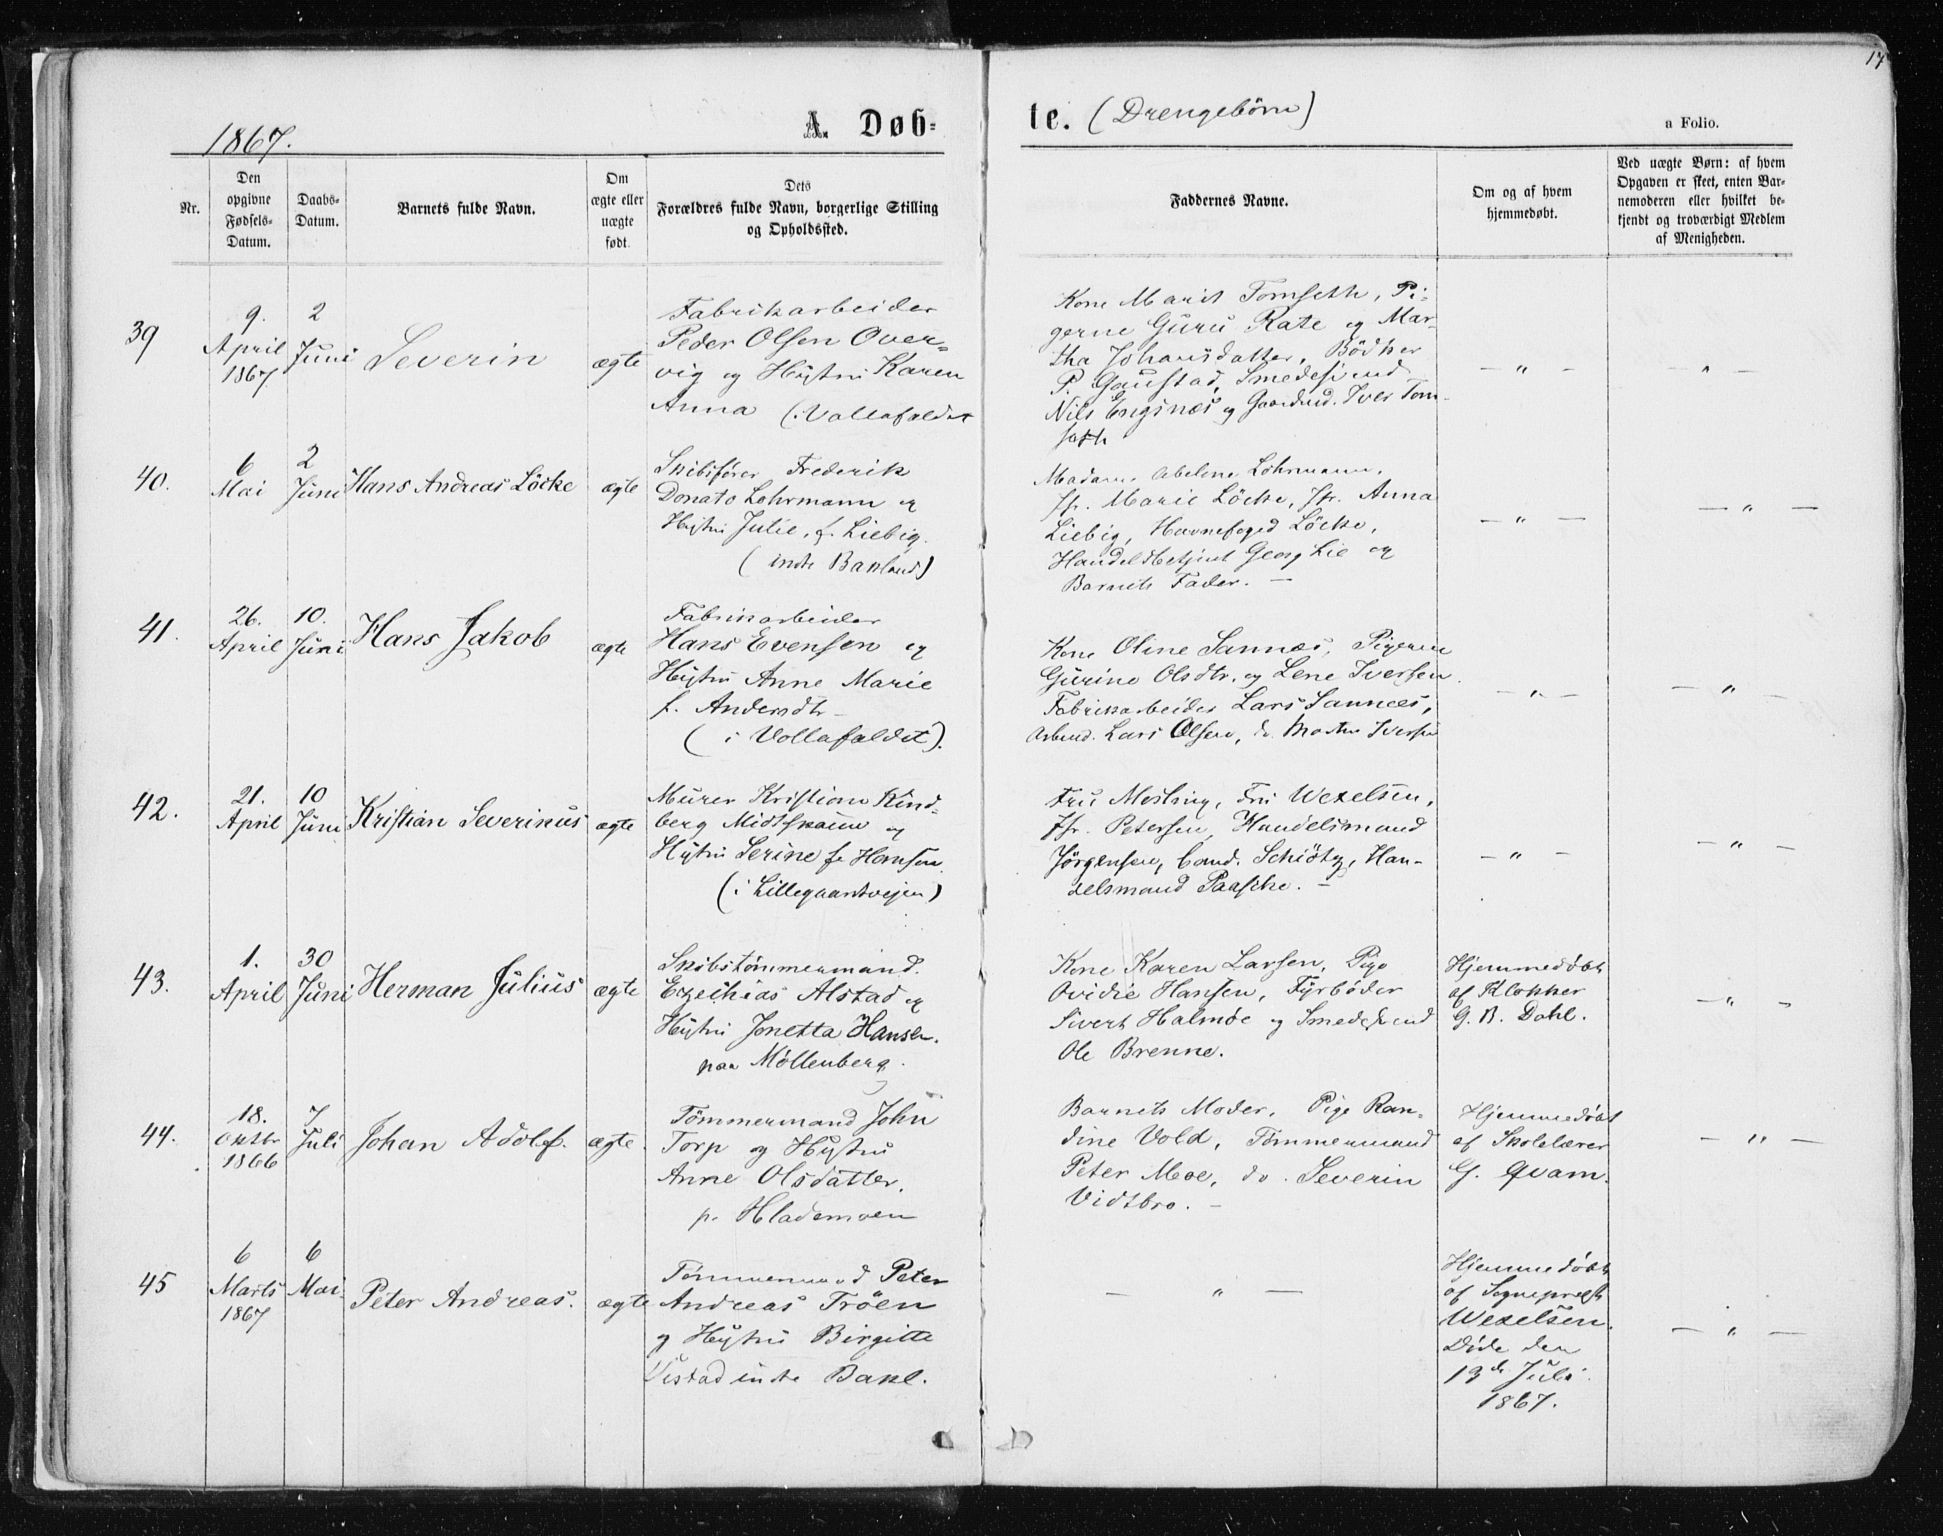 17
1867.
A. Døb-
te. (Drengebörn)
a Folio.
Nr.
Den
opgivne
Fødsels-
Datum.
Daabs-
Datum.
Barnets fulde Navn.
Om
ægte eller
uægte
født.
Dets
Forældres fulde Navn, borgerlige Stilling
og Opholdssted.
Faddernes Navne.
Om og af hvem
hjemmedøbt.
Ved uægte Børn: af hvem
Opgaven er skeet, enten Bar-
nemoderen eller hvilket be-
kjendt og troværdigt Medlem
af Menigheden.
39
9.
April
1867
2
Juni
Severin
ægte
Fabrikarbeider
Peder Olsen Over-
vig og Hustru Karen
Anna (i Vollafaldet
Kone Marit Tomseth, Pi-
gerne Guru Rate og Mar-
tha Johansdatter, Bödker
P. Gaustad, Smedesvend
Nils Engsnes og Gaardmd. Iver Tom-
seth
— " —
— " —
40.
6
Mai
2
Juni
Hans Andreas Löcke
ægte
Skibsfører Frederik
Donato Lohrmann og
Hustru Julie, f. Liebig.
(inde Bakland)
Madam Abelene Lohrmann,
Jfr. Marie Löcke, Jfr. Anna
Liebig, Havnefoged Löcke,
Handelsbetjent Georg Lie og
Barnets Fader. —
— " —
— " —
41.
26.
April
10.
Juni
Hans Jakob
ægte
Fabrikarbeider
Hans Evensen og
Hustru Anne Marie
f. Andersdtr
(i Vollafaldet).
Kone Oline Sannæs, Pigerne
Gurine Olsdtr. og Lene Iversen.
Fabrikarbeider Lars Sannæs,
Arbmd. Lars Olsen, do Morten Iversen
— " —
— " —
42.
21.
April
10
Juni
Kristian Severinus
ægte
Murer Kristian Rind-
berg Midtskaun og
Hustru Serine f. Hansen
(i Lillegaardsvejen)
Fru Mosling, Fru Wexelsen,
Jfr. Petersen, Handelsmand
Jörgensen, Cand. Schiötz, Han-
delsmand Paasche. —
— " —
— " —
43.
1.
April
30
Juni
Herman Julius
ægte
Skibstömmermand.
Ezechias Alstad og
Hustru Jonetta Hansen.
paa Möllenberg.
Kone Karen Larsen, Pige
Ovidie Hansen, Fyrböder
Sivert Halmöe og Smedesvend
Ole Brenne.
Hjemmedøbt
af Klokker
G. B. Dahl.
— " —
44.
18.
Oktbr
1866
7
Juli
Johan Adolf.
ægte
Tömmermand John
Torp og Hustru
Anne Olsdatter,
p. Hlademoen
Barnets Moder, Pige Ran-
dine Vold, Tömmermand
Peter Moe, do. Severin
Vidtbro. —
Hjemmedøbt
af Skolelærer
G. Qvam.
— " —
45
6
Marts
1867
6
Mai
Peter Andreas.
ægte
Tömmermand Peter
Andreas Tröen
og Hustru Birgitte
Vistad inde Bakl.
— " —
Hjemmedøbt
af Sogneprest
Wexelsen.
Døde den
13de Juli
1867.
— " —